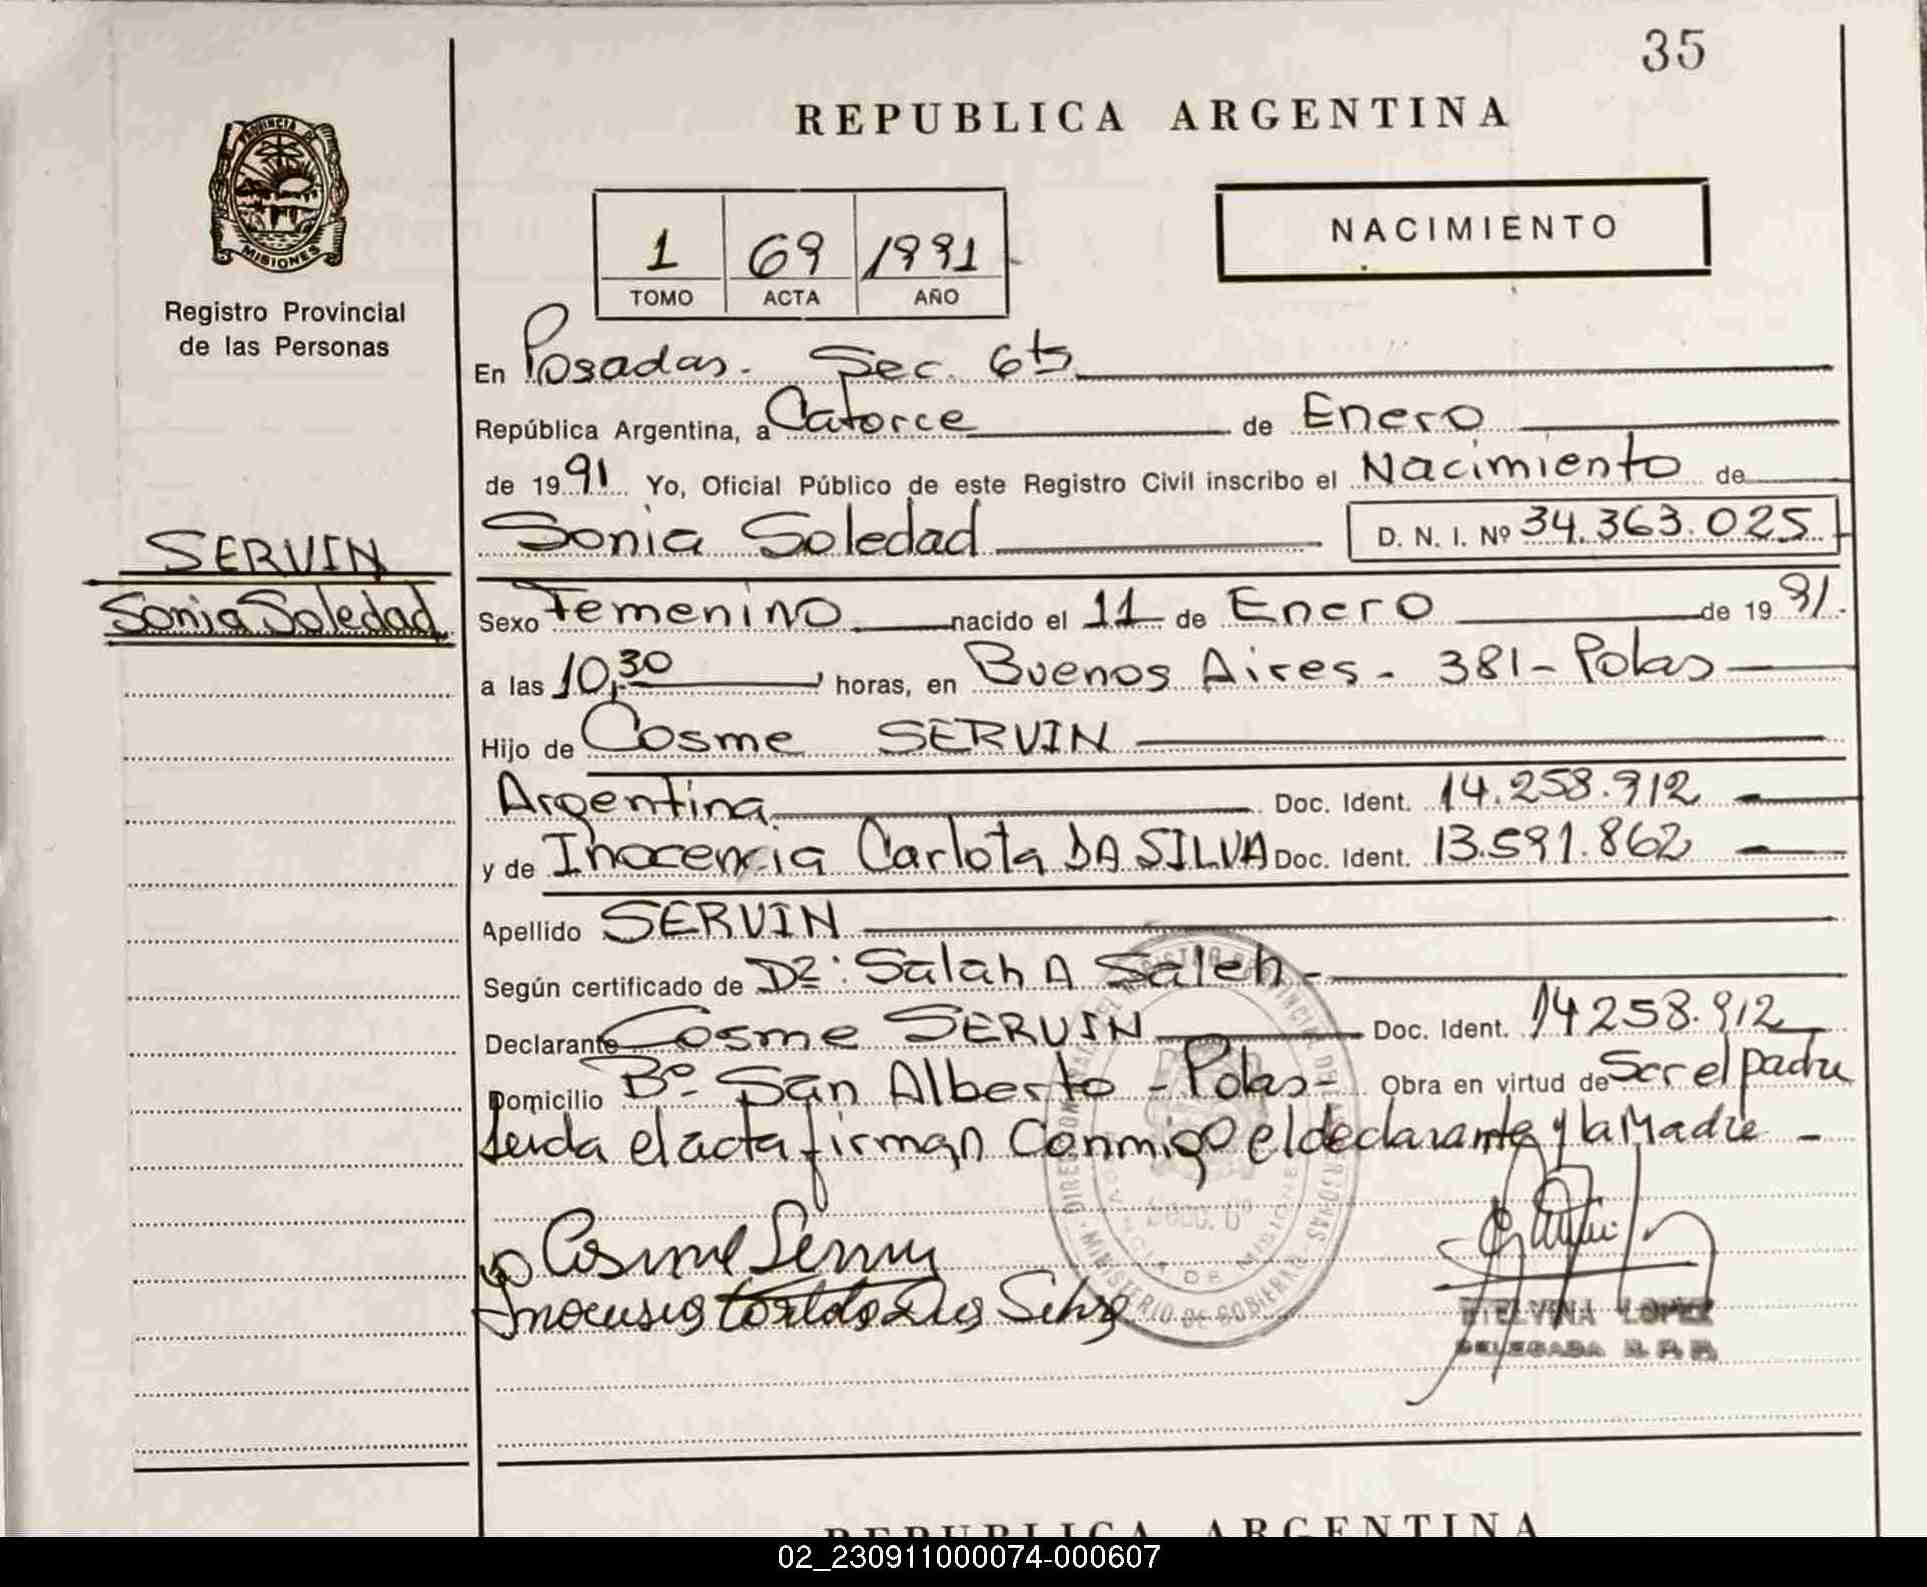 35
REPUBLICA ARGENTINA
PROVINCIA DE
MISIONES
Registro Provincial
de las Personas
1 69 1991
TOMO ACTA AÑO
NACIMIENTO
En Posadas. Sec. 6ta
República Argentina, a Catorce de Enero
de 1991 Yo, Oficial Público de este Registro Civil inscribo el Nacimiento de
SERVIN
Sonia Soledad
Sonia Soledad D. N. I. Nº 34.363.025
Sexo Femenino nacido el 11 de Enero de 1991.
a las 10,30 horas, en Buenos Aires - 381 - Pdas
Hijo de Cosme SERVIN
Argentina Doc. Ident. 14.258.912
y de Inocencia Carlota DA SILVA Doc. Ident. 13.591.862
Apellido SERVIN
Según certificado de Dr: Salah A Saleh -
Declarante Cosme SERVIN Doc. Ident. 14258.912
Domicilio Bº San Alberto - Pdas - Obra en virtud de Ser el padre
Leida el acta firman Conmigo el declarante y la Madre -
Cosme Servin
ETELVINA LOPEZ
DELEGADA R. P. P.
REPUBLICA ARGENTINA
02_230911000074-000607